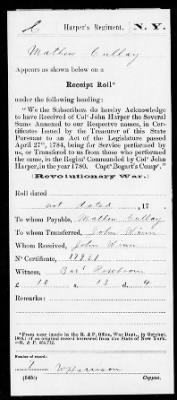 C | Harper's Regiment, | N. Y.
Mathew Cullay
Appears as shown below on a
Receipt Roll*
under the following heading:
"We the Subscribers do hereby Acknowledge
to have Received of Col John Harper the Several
Sums Annexed to our Respective names, in
Certificates Issued by the Treasurer of this State
Pursuant to an Act of the Legislature passed
April 27th, 1784, being for Service performed by
us, or Transferred to us from those who performed
the same, in the Regim^t Commanded by Col^o John
Harper, in the year 1780. Capt^n Bogart's Comp^y."
(Revolutionary War.)
Roll dated
not dated, 17
To whom Payable, Mathew Cullay
To whom Transferred, John
Whom Received, John
N^o Certificate,
Witness,
£ 12 s. 13 d. 4
Remarks:
Number of record:
Copyist.